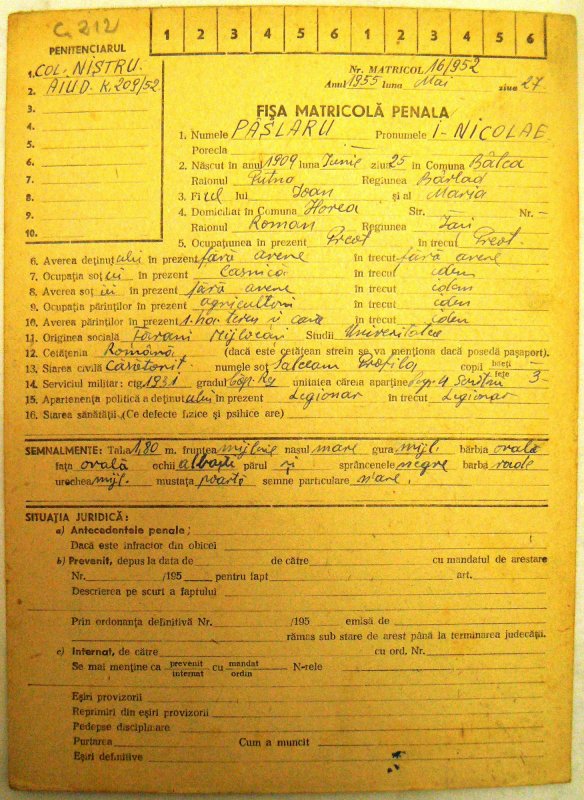 C. 212
1 2 3 4 5 6 1 2 3 4 5 6
PENITENCIARUL
1. COL. NISTRU.
2. AIUD. K. 209/52
3.
4.
5.
6.
7.
8.
9.
10.
Nr. MATRICOL 16/952
Anul 1955 luna Mai ziua 27
FIȘA MATRICOLĂ PENALA
1. Numele PÂSLARU Pronumele I-NICOLAE
Porecla
2. Născut în anul 1909 luna Iunie ziua 25 în Comuna Bâlca
Raionul Putna Regiunea Bârlad
3. Fiul lui Ioan și al Maria
4. Domiciliat în Comuna Horea Str. - Nr. -
Raionul Roman Regiunea Iași
5. Ocupațiunea în prezent Preot în trecut Preot.
6. Averea deținutului în prezent fără avere în trecut fără avere
7. Ocupația soției în prezent Casnică în trecut idem
8. Averea soției în prezent fără avere în trecut idem
9. Ocupația părinților în prezent agricultori în trecut idem
10. Averea părinților în prezent 1-ha teren și casă în trecut idem
11. Originea socială Țărani Mijlocași Studii Universitatea
12. Cetățenia Română (dacă este cetățean strein se va menționa dacă posedă pașaport).
13. Starea civilă Căsătorit numele soț Profila copii băeți fete 3-
14. Serviciul militar: ctg. 1931 gradul unitatea căreia aparține
15. Apartenența politică a deținutului în prezent Legionar în trecut Legionar
16. Starea sănătății. (Ce defecte fizice și psihice are)
SEMNALMENTE: Talia 1,80 m. fruntea mijlocie nasul mare gura mijl. bărbia ovală
fața ovală ochii albaștri părul sprâncenele negre barba rade
urechea mijl. mustața poartă semne particulare n'are.
SITUAȚIA JURIDICĂ:
a) Antecedentele penale;
Dacă este infractor din obicei
b) Prevenit, depus la data de de către cu mandatul de arestare
Nr. /195 pentru fapt art.
Descrierea pe scurt a faptului
Prin ordonanța definitivă Nr. /195 emisă de
rămas sub stare de arest până la terminarea judecății.
c) Internat, de către cu ord. Nr.
Se mai menține ca prevenit internat cu mandat ordin N-rele
Eșiri provizorii
Reprimiri din eșiri provizorii
Pedepse disciplinare
Purtarea Cum a muncit
Eșiri definitive